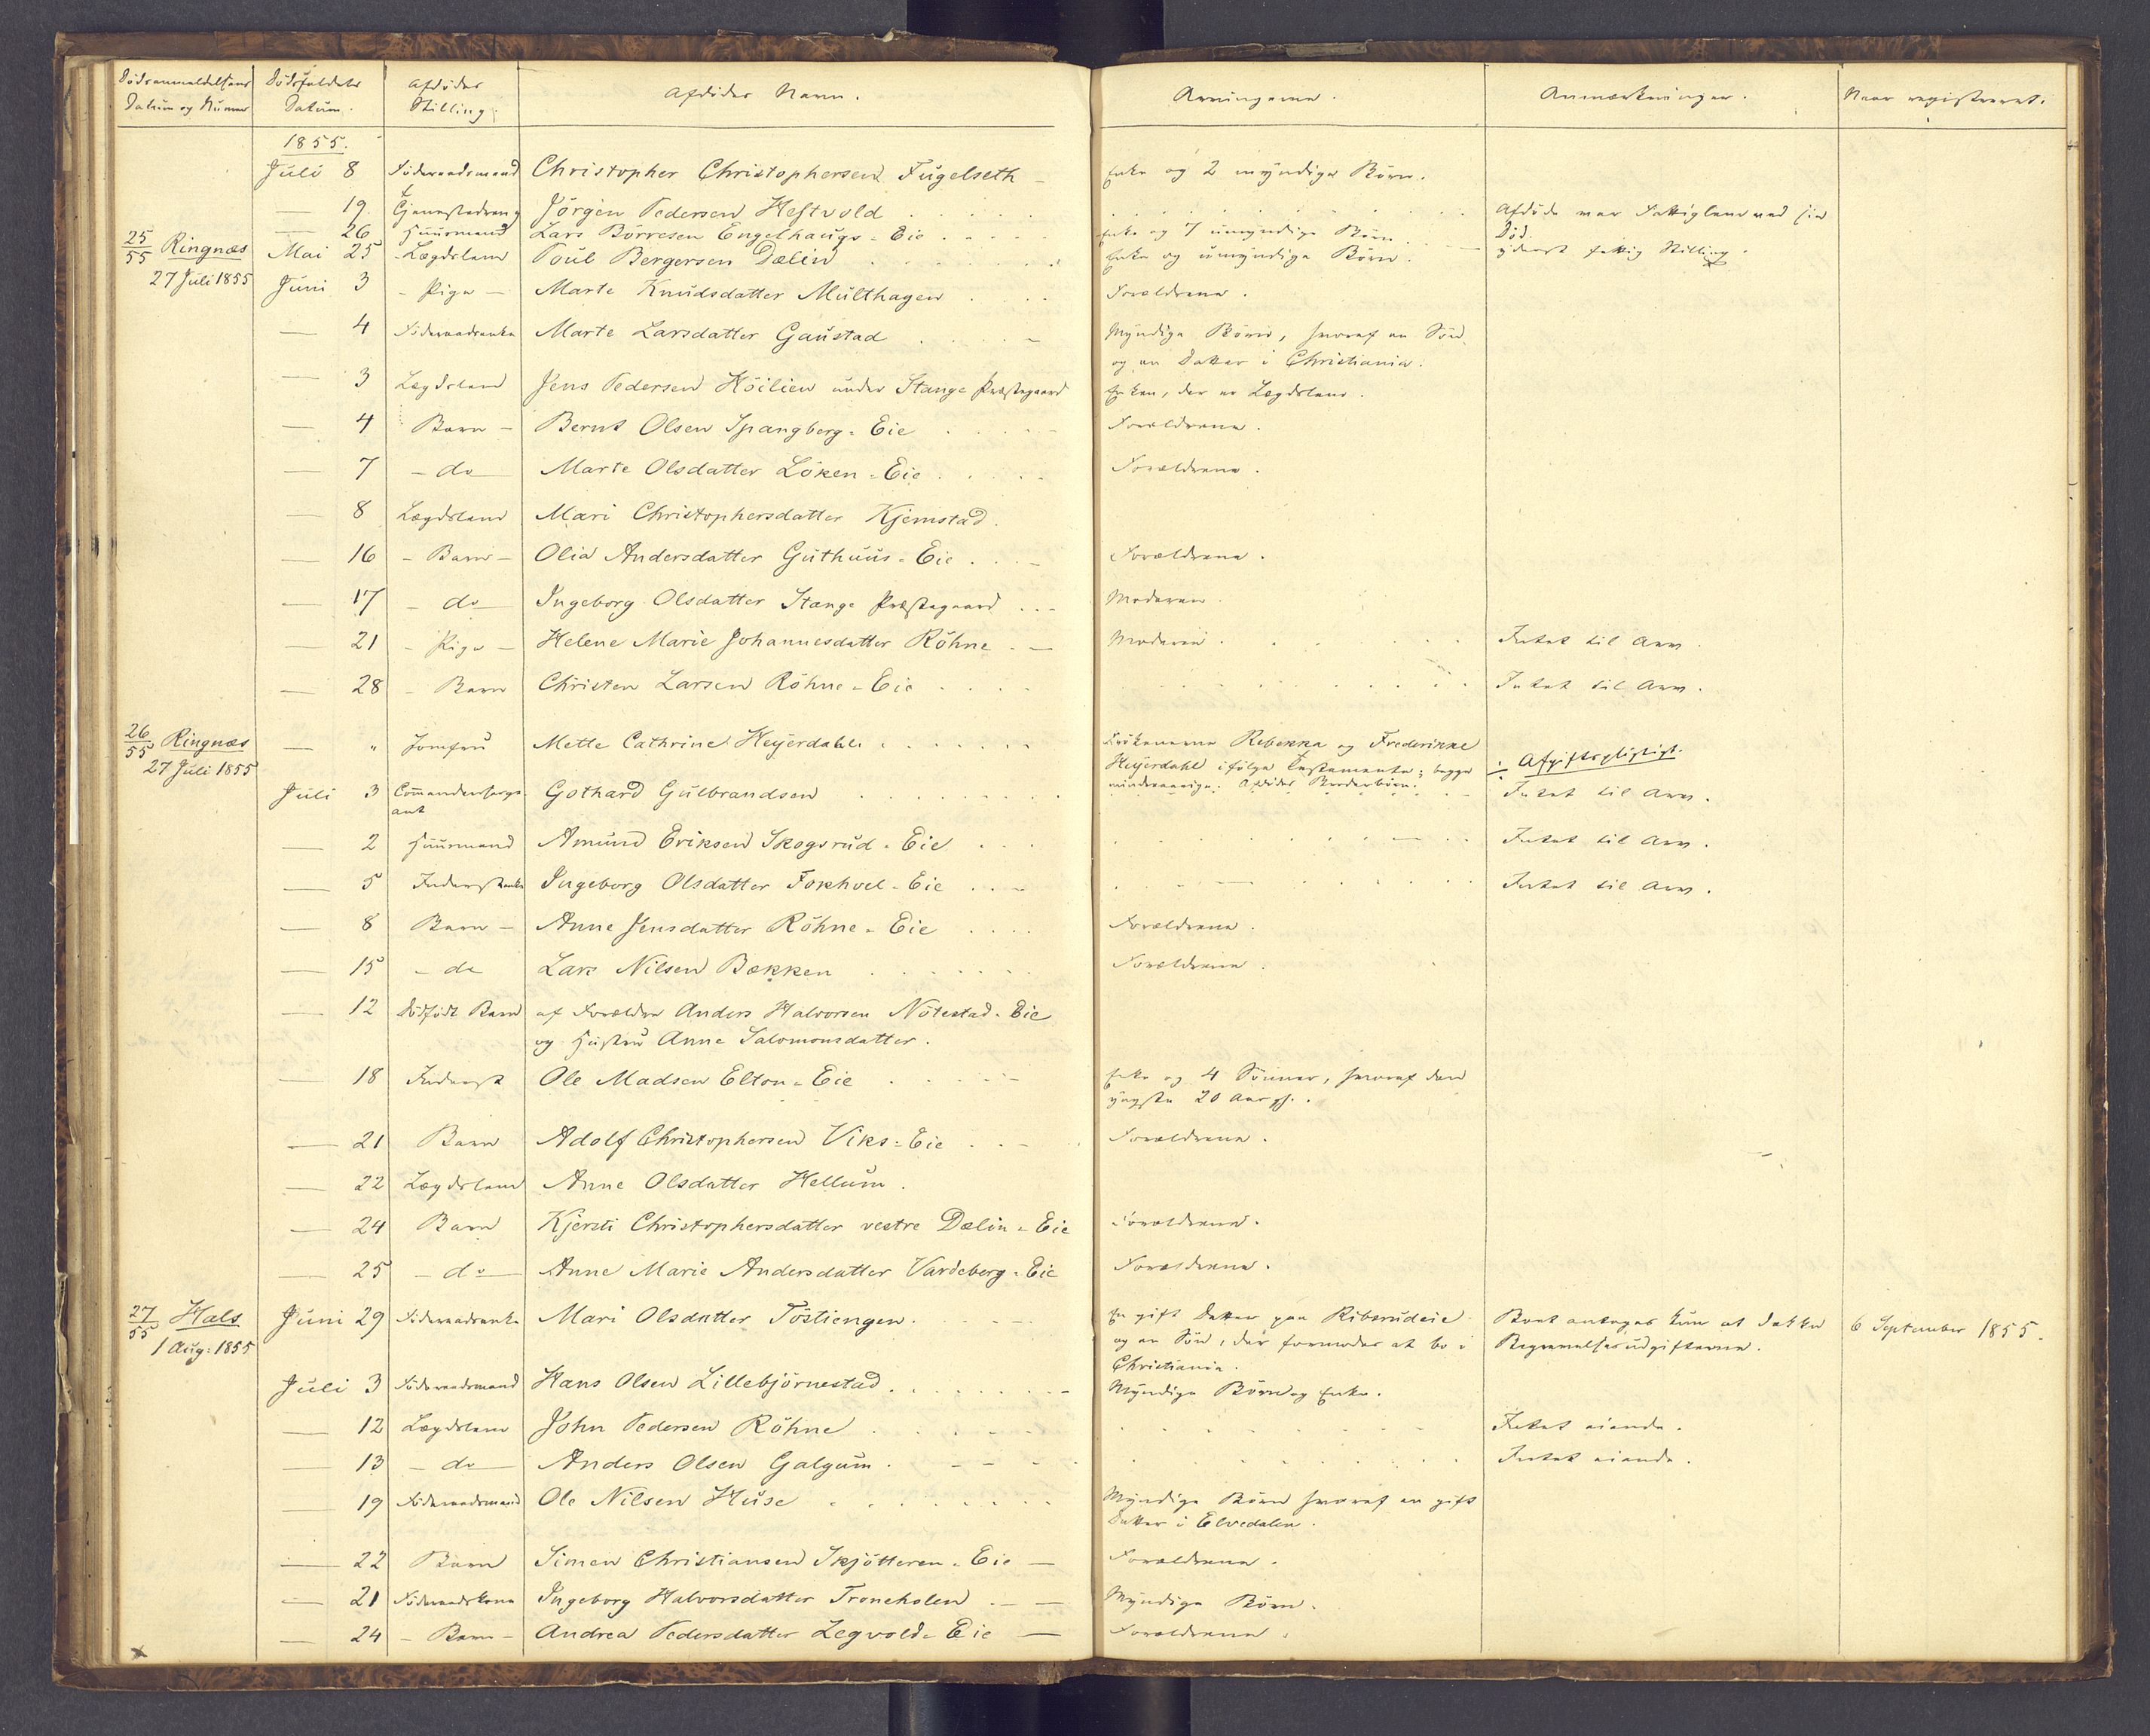 Dödsanmeldelsens Dödsfaldets Afdödes Afdödes Navn. Arvingerne. Anmærkninger. Naar registreret.
Datum og Numer Datum. Stilling.
1855.
Juli 8 Föderaadsmand Christopher Christophersen Fugelseth Enke og 2 myndige Börn.
19. Jörgen Pedersen Hestvold Afdöde var Fattiglem ved sin
Död.
26 Huusmand Lars Börresen Engelhaugs-Eie Enke og 7 umyndige Börn.
25/55 Ringnæs Mai 25 Lægdslem Poul Bergersen Dælin Enke og umyndige Börn. yderst fattig Stilling.
27 Juli 1855 Juni 3 Pige Marte Knudsdatter Multhagen Forældrene.
4 Föderaadsenke Marte Larsdatter Gaustad Myndige Börn, hvoraf en Sön
og en Datter i Christiania.
3 Lægdslem Jens Pedersen Höilien under Stange Præstegaard Enken, der er Lægdslem.
4 Barn Bernt Olsen Spangberg-Eie Forældrene.
7 do Marte Olsdatter Löken-Eie Forældrene.
8 Lægdslem Mari Christophersdatter Kjemstad.
16 Barn Olia Andersdatter Guthuus-Eie Forældrene.
17 do Ingeborg Olsdatter Stange Præstegaard Moderen
21 Pige Helene Marie Johannesdatter Röhne Moderen Intet til Arv.
28 Barn Christen Larsen Röhne-Eie Intet til Arv.
26/55 Ringnæs " Jomfru Mette Cathrine Heyerdahl Frökenerne Rebekka og Frederikke
27 Juli 1855 Heyerdahl ifölge Testamente; begge ÷ Afgiftspligtigt.
mindreaarige. Afdödes Broderbörn.
Juli 3 Gothard Gulbrandsen Intet til Arv.
2 Huusmand Amund Eriksen Skogsrud-Eie Intet til Arv.
5 Inderstenke Ingeborg Olsdatter Fokhoel-Eie Intet til Arv.
8 Barn Anne Jensdatter Röhne-Eie Forældrene.
15 do Lars Nilsen Bækken Forældrene.
12 Dödfödt Barn af Forældre Anders Halvorsen Nötestad-Eie
og Hustru Anne Salomonsdatter.
18 Inderst Ole Madsen Elton-Eie Enke og 4 Sönner, hvoraf den
yngste 20 Aar gl.
21 Barn Adolf Christophersen Viks-Eie Forældrene.
22 Lægdslem Anne Olsdatter Hellum.
24 Barn Kjersti Christophersdatter vestre Dælin-Eie Forældrene.
25 do Anne Marie Andersdatter Vardeberg-Eie Forældrene.
27/55 Hals Juni 29 Föderaadsenke Mari Olsdatter Töstiengen. En gift Datter paa Riberudeie Boet antages kun at dække 6 September 1855.
1 Aug: 1855 og en Sön, der formodes at bo i Begravelsesudgifterne.
Christiania.
Juli 3 Föderaadsmand Hans Olsen Lillebjörnestad Myndige Börn og Enke.
12 Lægdslem John Pedersen Röhne Intet eiende.
13 do Anders Olsen Galgum Intet eiende.
19 Föderaadsmand Ole Nilsen Huse Myndige Börn hvoraf en gift
Datter i Elvedalen.
22 Barn Simen Christiansen Skjötteren-Eie Forældrene.
21 Föderaadskone Ingeborg Halvorsdatter Troneholen Myndige Börn.
24 Barn Andrea Pedersdatter Legvold-Eie Forældrene.